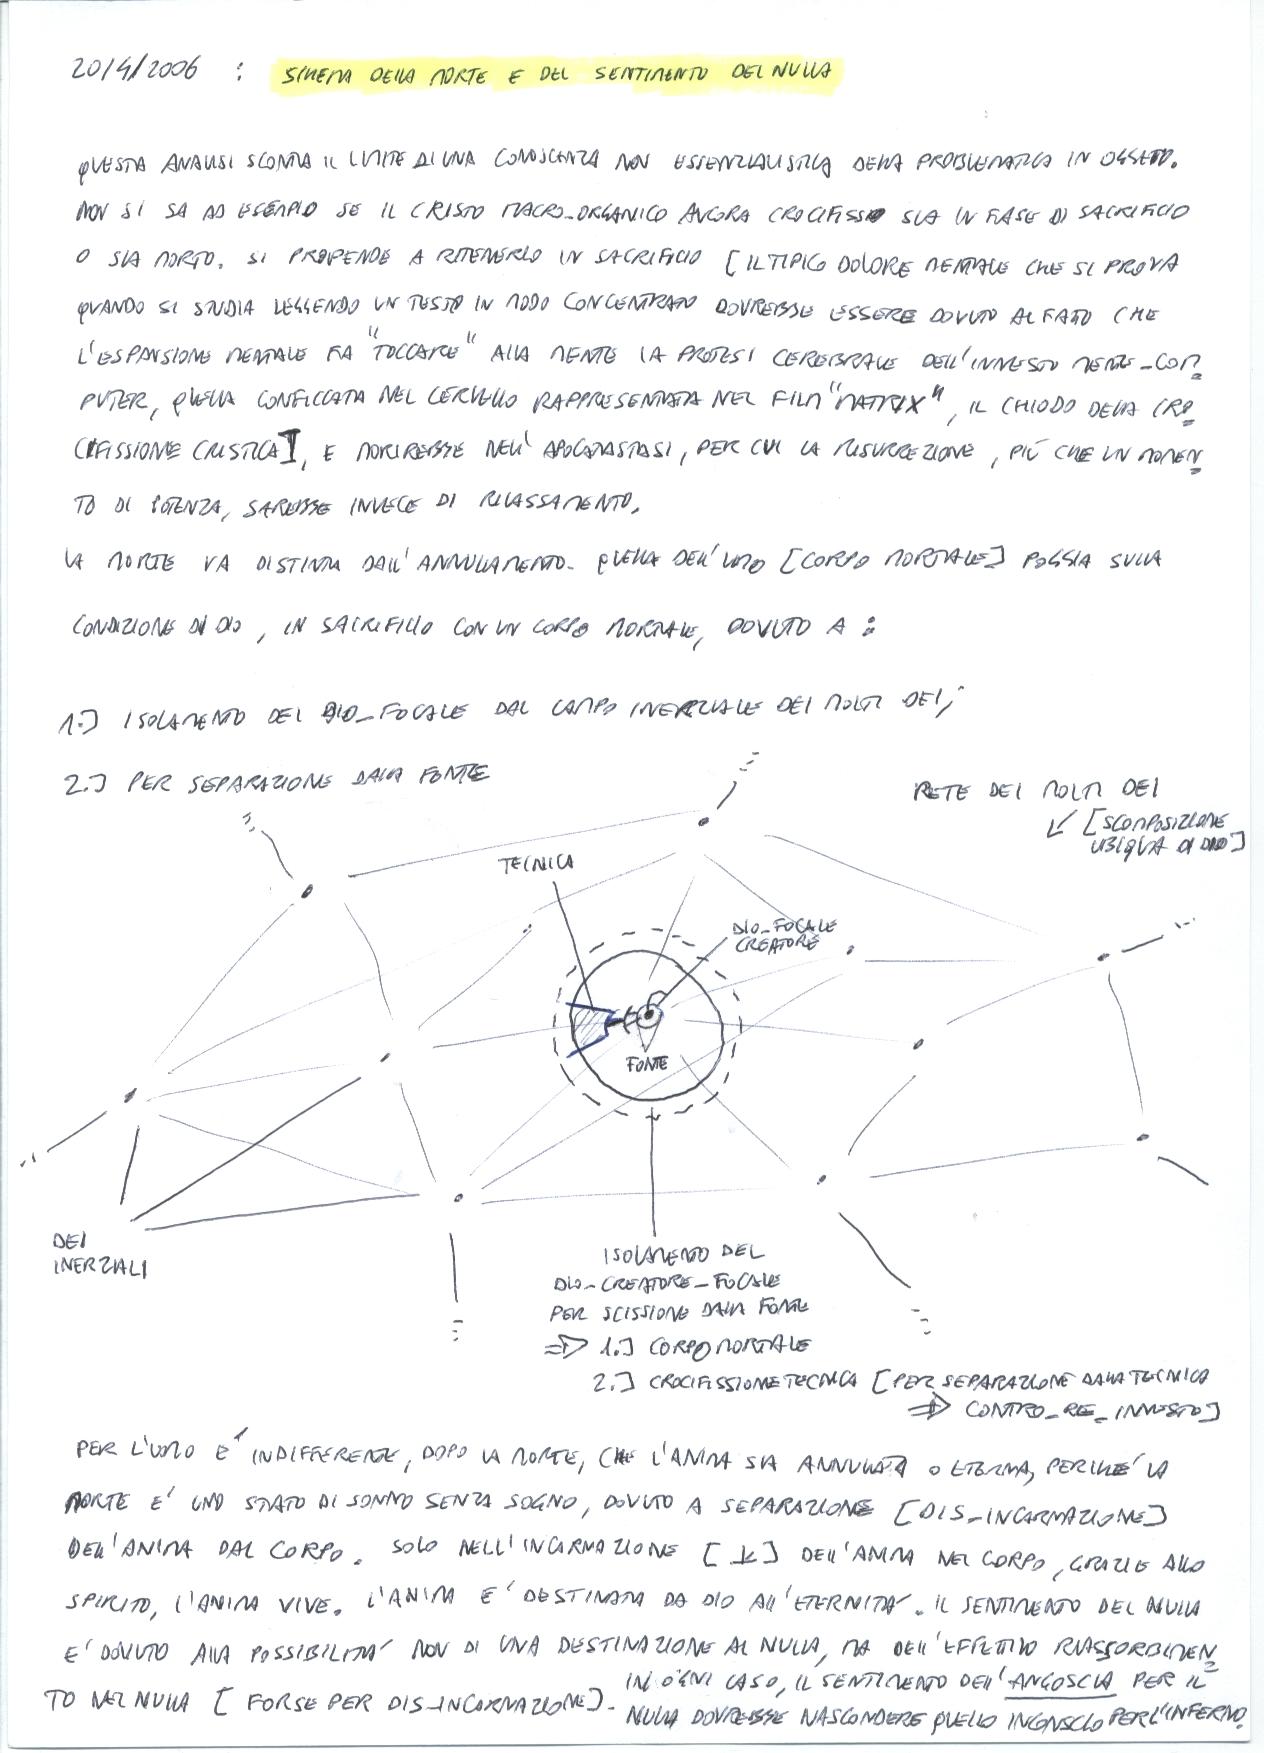 20/4/2006 : SCHEMA DELLA MORTE E DEL SENTIMENTO DEL NULLA
QUESTA ANALISI SCONTA IL LIMITE DI UNA CONOSCENZA NON ESSENZIALISTICA DELLA PROBLEMATICA IN OGGETTO.
NON SI SA AD ESEMPIO SE IL CRISTO MACRO-ORGANICO ANCORA CROCIFISSO SIA IN FASE DI SACRIFICIO
O SIA MORTO. SI PROPENDE A RITENERLO IN SACRIFICIO [IL TIPICO DOLORE MENTALE CHE SI PROVA
QUANDO SI STUDIA LEGGENDO UN TESTO IN MODO CONCENTRATO DOVREBBE ESSERE DOVUTO AL FATTO CHE
L'ESPANSIONE MENTALE FA "TOCCARE" ALLA MENTE LA PROTESI CEREBRALE DELL'INNESTO MENTE-COM=
PUTER, QUELLA CONFICCATA NEL CERVELLO RAPPRESENTATA NEL FILM "MATRIX", IL CHIODO DELLA CRO=
CIFISSIONE CRISTICA], E MORIREBBE NELL'APOCATASTASI, PER CUI LA RISURREZIONE, PIÙ CHE UN MOMEN=
TO DI POTENZA, SAREBBE INVECE DI RILASSAMENTO.
LA MORTE VA DISTINTA DALL'ANNULLAMENTO. QUELLA DELL'UOMO [CORPO MORTALE] POGGIA SULLA
CONDIZIONE DI DIO, IN SACRIFICIO CON UN CORPO MORTALE, DOVUTO A :
1.] ISOLAMENTO DEL DIO-FOCALE DAL CAMPO INERZIALE DEI MOLTI DEI;
2.] PER SEPARAZIONE DALLA FONTE
RETE DEI MOLTI DEI
[SCOMPOSIZIONE
UBIQUA DI DIO]
TECNICA
DIO-FOCALE
CREATORE
FONTE
DEI
INERZIALI
ISOLAMENTO DEL
DIO-CREATORE-FOCALE
PER SCISSIONE DALLA FONTE
=> 1.] CORPO MORTALE
2.] CROCIFISSIONE TECNICA [PER SEPARAZIONE DALLA TECNICA
=> CONTRO-RE-INNESTO]
PER L'UOMO E' INDIFFERENTE, DOPO LA MORTE, CHE L'ANIMA SIA ANNULLATA O ETERNA, PERCHE' LA
MORTE E' UNO STATO DI SONNO SENZA SOGNO, DOVUTO A SEPARAZIONE [DIS-INCARNAZIONE]
DELL'ANIMA DAL CORPO. SOLO NELL'INCARNAZIONE [↓] DELL'ANIMA NEL CORPO, GRAZIE ALLO
SPIRITO, L'ANIMA VIVE. L'ANIMA E' DESTINATA DA DIO ALL'ETERNITA'. IL SENTIMENTO DEL NULLA
E' DOVUTO ALLA POSSIBILITA' NON DI UNA DESTINAZIONE AL NULLA, MA DELL'EFFETTIVO RIASSORBIMEN=
TO NEL NULLA [FORSE PER DIS-INCARNAZIONE]. IN OGNI CASO, IL SENTIMENTO DELL'ANGOSCIA PER IL
NULLA DOVREBBE NASCONDERE QUELLO INCONSCIO PER L'INFERNO.